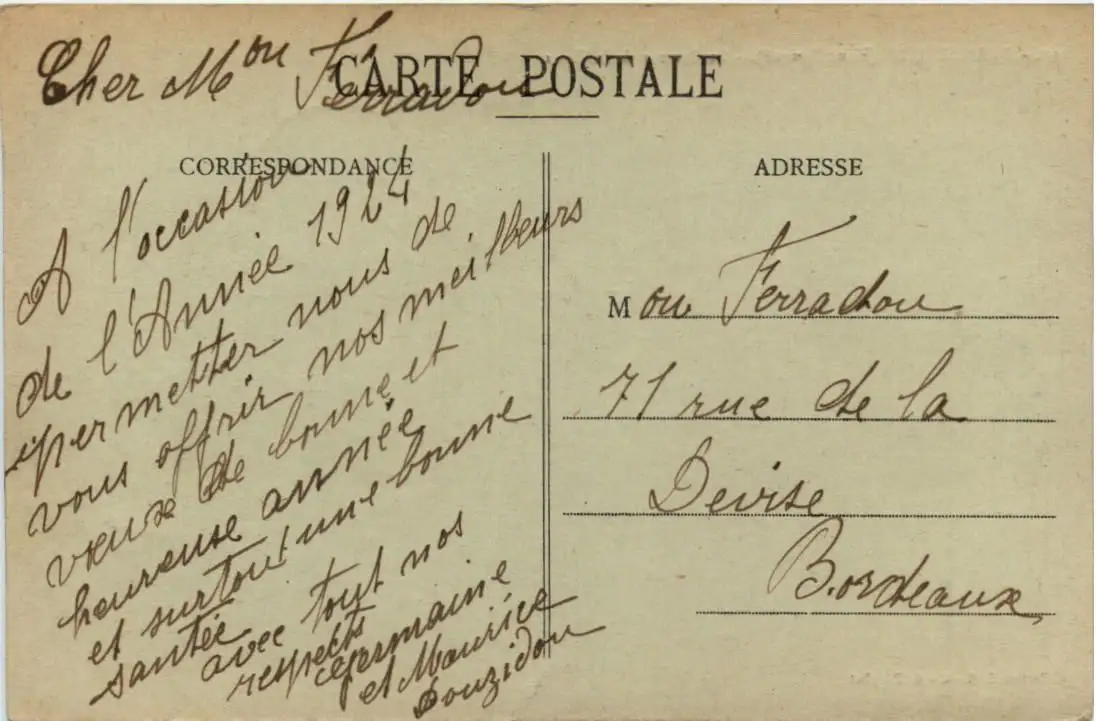 Cher Mon Ferradou
CARTE POSTALE
CORRESPONDANCE
A l'occasion
de l'Année 1924
permetter nous de
vous offrir nos meilleurs
vœux de bonne et
heureuse année
et surtout une bonne
santée
avec tout nos
respects
Germaine
et Maurice
Douzidou
ADRESSE
Mon Ferradou
71 rue de la
Devise
Bordeaux